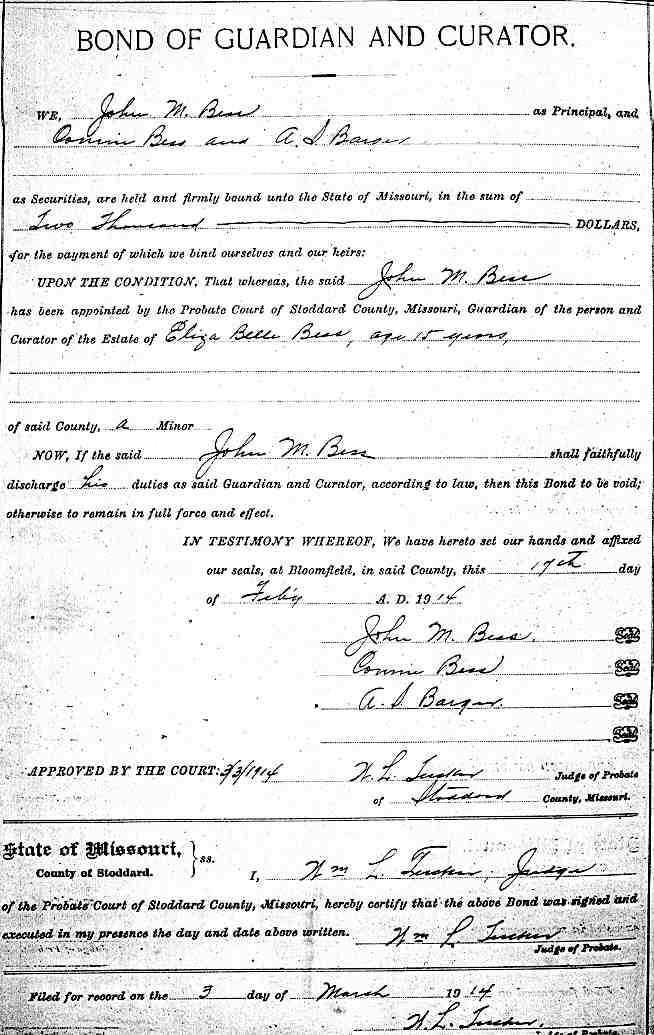 BOND OF GUARDIAN AND CURATOR.
WE, John M. Bess as Principal, and
Connie Bess and A. S. Barger
as Securities, are held and firmly bound unto the State of Missouri, in the sum of
Two Thousand DOLLARS,
for the payment of which we bind ourselves and our heirs:
UPON THE CONDITION, That whereas, the said John M. Bess
has been appointed by the Probate Court of Stoddard County, Missouri, Guardian of the person and
Curator of the Estate of Eliza Belle Bess, age 15 years,
of said County, a Minor
NOW, If the said John M. Bess shall faithfully
discharge his duties as said Guardian and Curator, according to law, then this Bond to be void;
otherwise to remain in full force and effect.
IN TESTIMONY WHEREOF, We have hereto set our hands and affixed
our seals, at Bloomfield, in said County, this 17th day
of Feby A. D. 1914
John M. Bess. Seal
Connie Bess Seal
A. S. Barger. Seal
Seal
APPROVED BY THE COURT: 3/3/1914 W. L. Tucker Judge of Probate
of Stoddard County, Missouri.
State of Missouri,
County of Stoddard. } ss.
I, Wm L. Tucker, Judge
of the Probate Court of Stoddard County, Missouri, hereby certify that the above Bond was signed and
executed in my presence the day and date above written. Wm L Tucker
Judge of Probate.
Filed for record on the 3 day of March 1914
W. L. Tucker,
Judge of Probate.